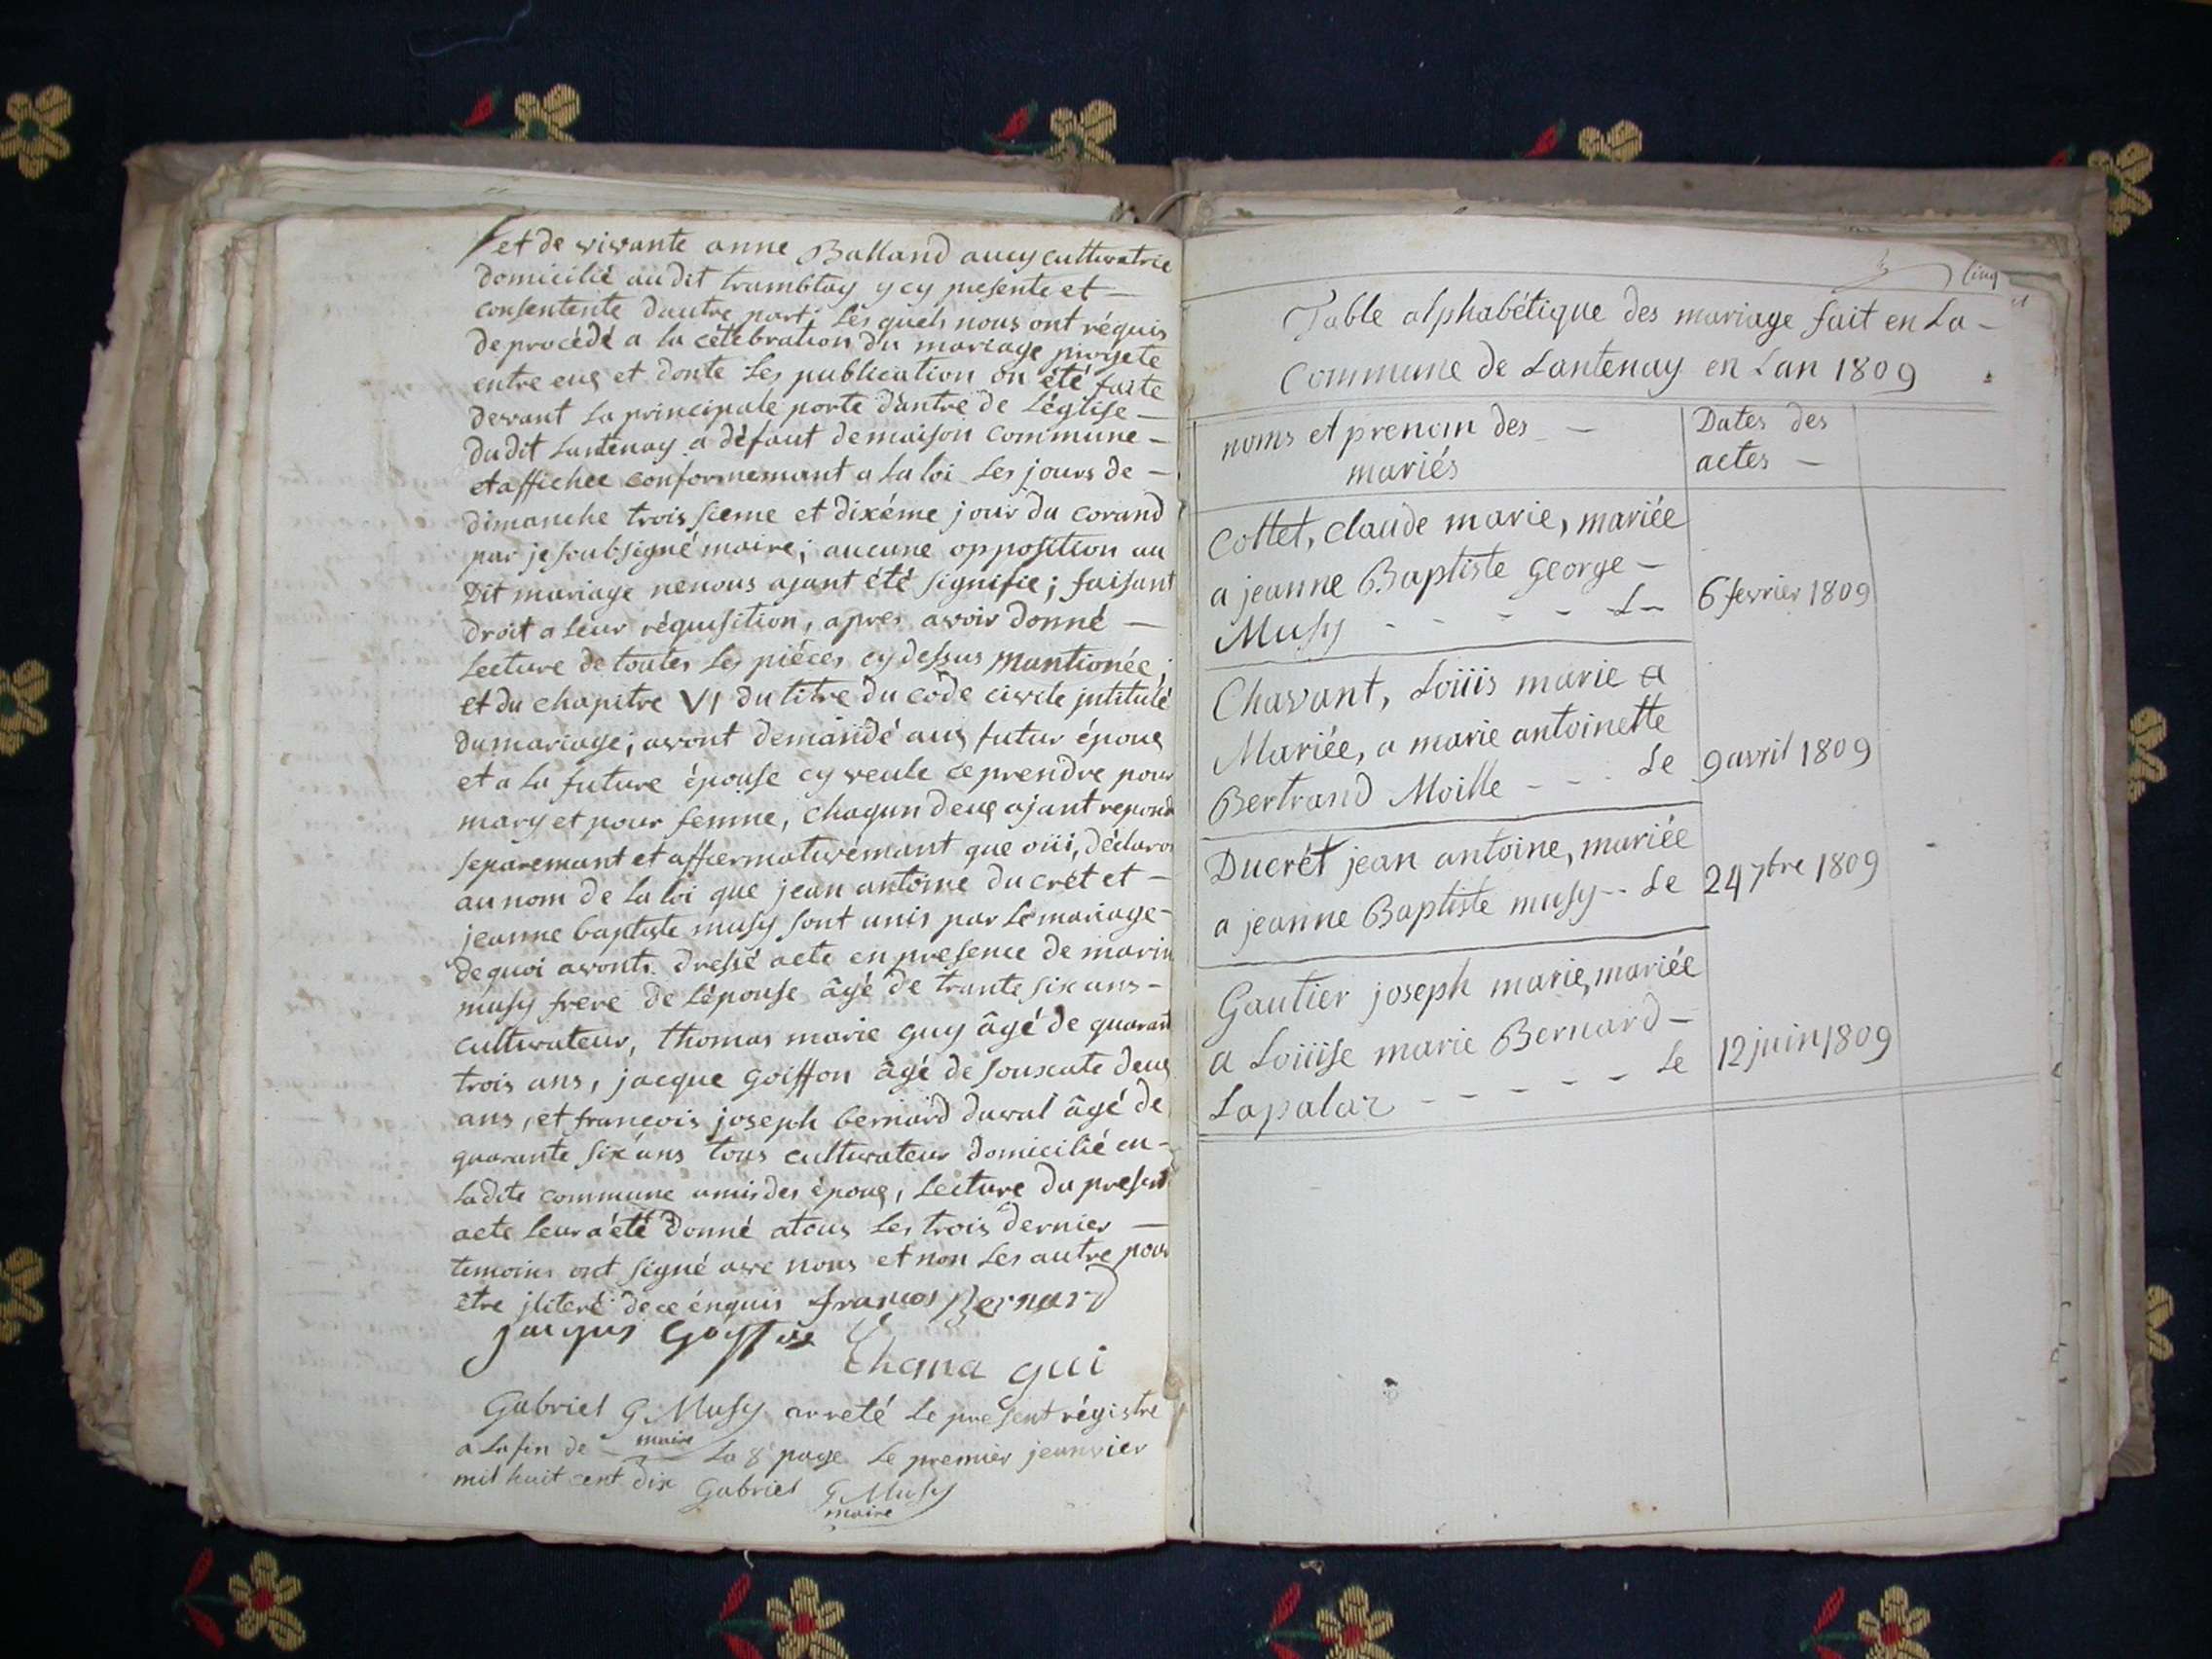 et de vivante anne Balland aucy cultivatrie
domicilié au dit tramblay y cy presente et —
consentente dautre part; Les quels nous ont réquis
de procédé a la célébration du mariage projete
entre eux et donte Les publication on été faite
devant La principale porte d'antre de L'église —
dudit Lantenay a défaut de maison commune —
et affichee conformemant a La loi Les jours de —
dimanche trois sieme et dixéme jour du corand
par je soubsigné maire; aucune opposition au
dit mariage ne nous ajant été signifie; faisant
droit a leur réquisition, apres avoir donné —
Lecture de toutes Les piéces cy dessus mantionée;
et du chapitre VI du titre du côde civile jntitulé
du mariage; avont demandé aux futur époux
et a La future épouse cy veule ce prendre pour
mary et pour femme, chaqun deux ajant repond
separemant et affiermativemant que oüi, déclaron
au nom de La loi que jean antoine ducrét et —
jeanne baptiste musy sont unis par Le mariage —
de quoi avonts dressé acte en presence de marin
musy frere de L'épouse âgé de trante six ans —
cultivateur, thomas marie guy âgé de quarant
trois ans, jacque goiffon âgé de souxcate deux
ans, et francois joseph bernard duval âgé de
quarante six ans tous cultivateur domicilié en —
Ladite commune amis des époux, Lecture du present
acte Leur a été donné a tous Les trois dernier —
temoins ont signé ave nous et non Les autre pour
être jliteré de ce énquis francos Bernard
jacques goyffon
thoma gui
Gabriel G Musy arreté Le present régistre
maire
a La fin de La 8 page Le premier jeanvier
mil huit cent dix Gabriel G Musy
maire
cinq
Table alphabétique des mariage fait en La —
Commune de Lantenay en Lan 1809
noms et prenom des —
mariés
Dates des
actes —
Cottet, claude marie, mariée
a jeanne Baptiste george —
Musy - - - - Le 6 fevrier 1809
Chavant, Loüis marie a
Mariée, a marie antoinette
Bertrand Moille - - - Le 9 avril 1809
Ducrét jean antoine, mariée
a jeanne Baptiste musy - - Le 24 7bre 1809
Gautier joseph marie, mariée
a Loüise marie Bernard —
Lapalar - - - - - Le 12 juin 1809